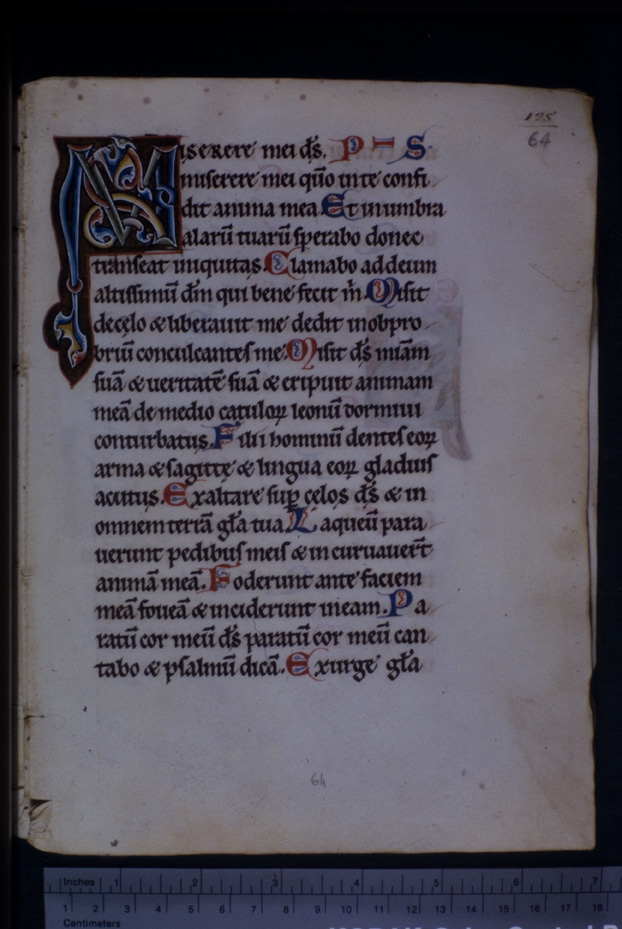 125
64
Miserere mei d̄s. P — S
miserere mei qūo in te confi
dit anima mea Et in umbra
alarū tuarū sperabo donec
transeat iniquitas. Clamabo ad deum
altissimū dn̄m qui bene fecit m̄. Misit
de cęlo & liberauit me dedit in obpro
briū conculcantes me. Misit d̄s miām
suā & ueritatē suā & eripuit animam
meā de medio catuloꝝ leonū dormiui
conturbatus. Filii hominū dentes eoꝝ
arma & sagittę & lingua eoꝝ gladius
acutus. Exaltare sup̄ cęlos d̄s & in
omnem terrā gl̄a tua. Laqueū para
uerunt pedibus meis & incuruauer̄t
animā meā. Foderunt ante faciem
meā foueā & inciderunt in eam. Pa
ratū cor meū d̄s paratū cor meū can
tabo & psalmū dicā. Exurge gl̄a
64
Inches 1 2 3 4 5 6 7
1 2 3 4 5 6 7 8 9 10 11 12 13 14 15 16 17 18
Centimeters